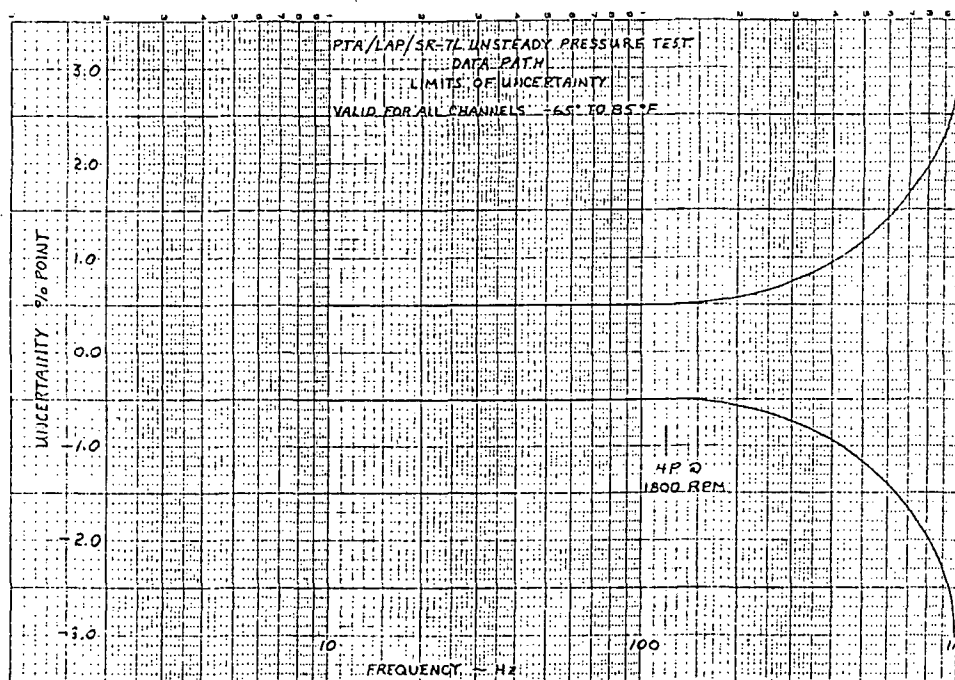 PTA/LAP/SR-7L UNSTEADY PRESSURE TEST
DATA PATH
LIMITS OF UNCERTAINTY
VALID FOR ALL CHANNELS -65° TO 85°F
UNCERTAINTY % POINT
3.0
2.0
1.0
0.0
-1.0
-2.0
-3.0
4P @
1800 RPM
10
100
FREQUENCY ~ HZ